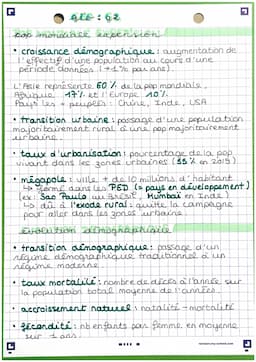 GEO : G2
pop mondiale expansion
• croissance démographique : augmentation de
l'effectif d'une population au cours d'une
période données (+1% par ans).
L'Asie représente 60% de la pop mondiale,
Afrique 17% et l'Europe 10%.
Pays les + peuplés : Chine, Inde, USA
• transition urbaine : passage d'une population
majoritairement rural à une pop majoritairement
urbaine.
• taux d'urbanisation : pourcentage de la pop
vivant dans les zones urbaines (55% en 2019).
• mégapole : ville + de 10 millions d'habitant
↳ formé dans les PED (= pays en développement)
(ex : Sao Paulo au Brésil, Mumbai en Inde)
↳ dû à l'exode rural : quitte la campagne
pour aller dans les zones urbaine
évolution démographique
• transition démographique : passage d'un
régime démographique traditionnel à un
régime moderne.
• taux mortalité : nombre de décès à l'année sur
la population total moyenne de l'année.
• accroissement naturel : natalité - mortalité
• fécondité : nb enfants par femme en moyenne
sur 1 ans